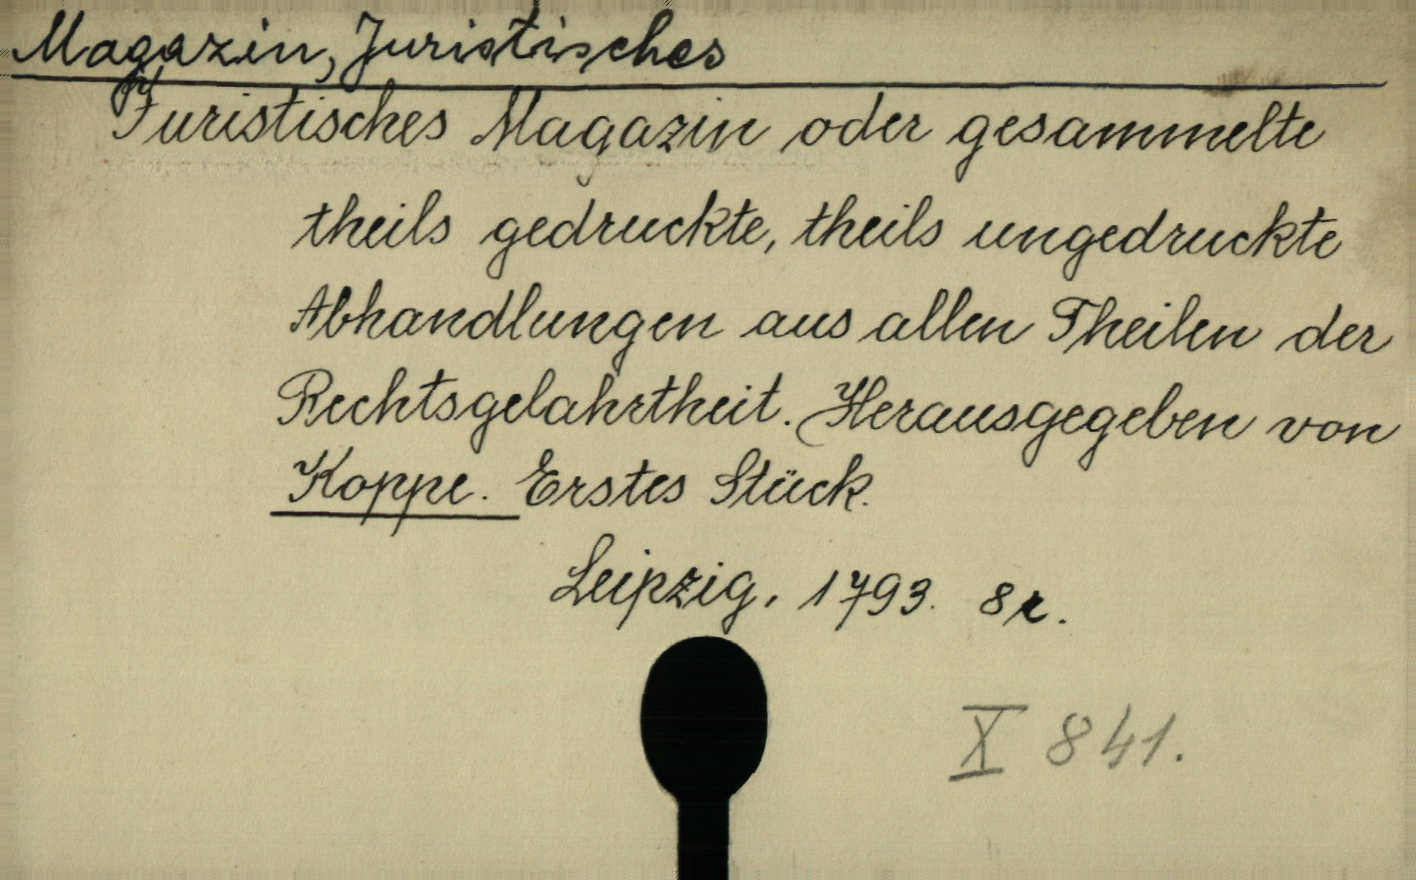 Magazin, Juristisches
Juristisches Magazin oder gesammelte
theils gedruckte, theils ungedruckte
Abhandlungen aus allen Theilen der
Rechtsgelahrtheit. Herausgegeben von
Koppe. Erstes Stück.
Leipzig, 1793. 8r.
X 841.